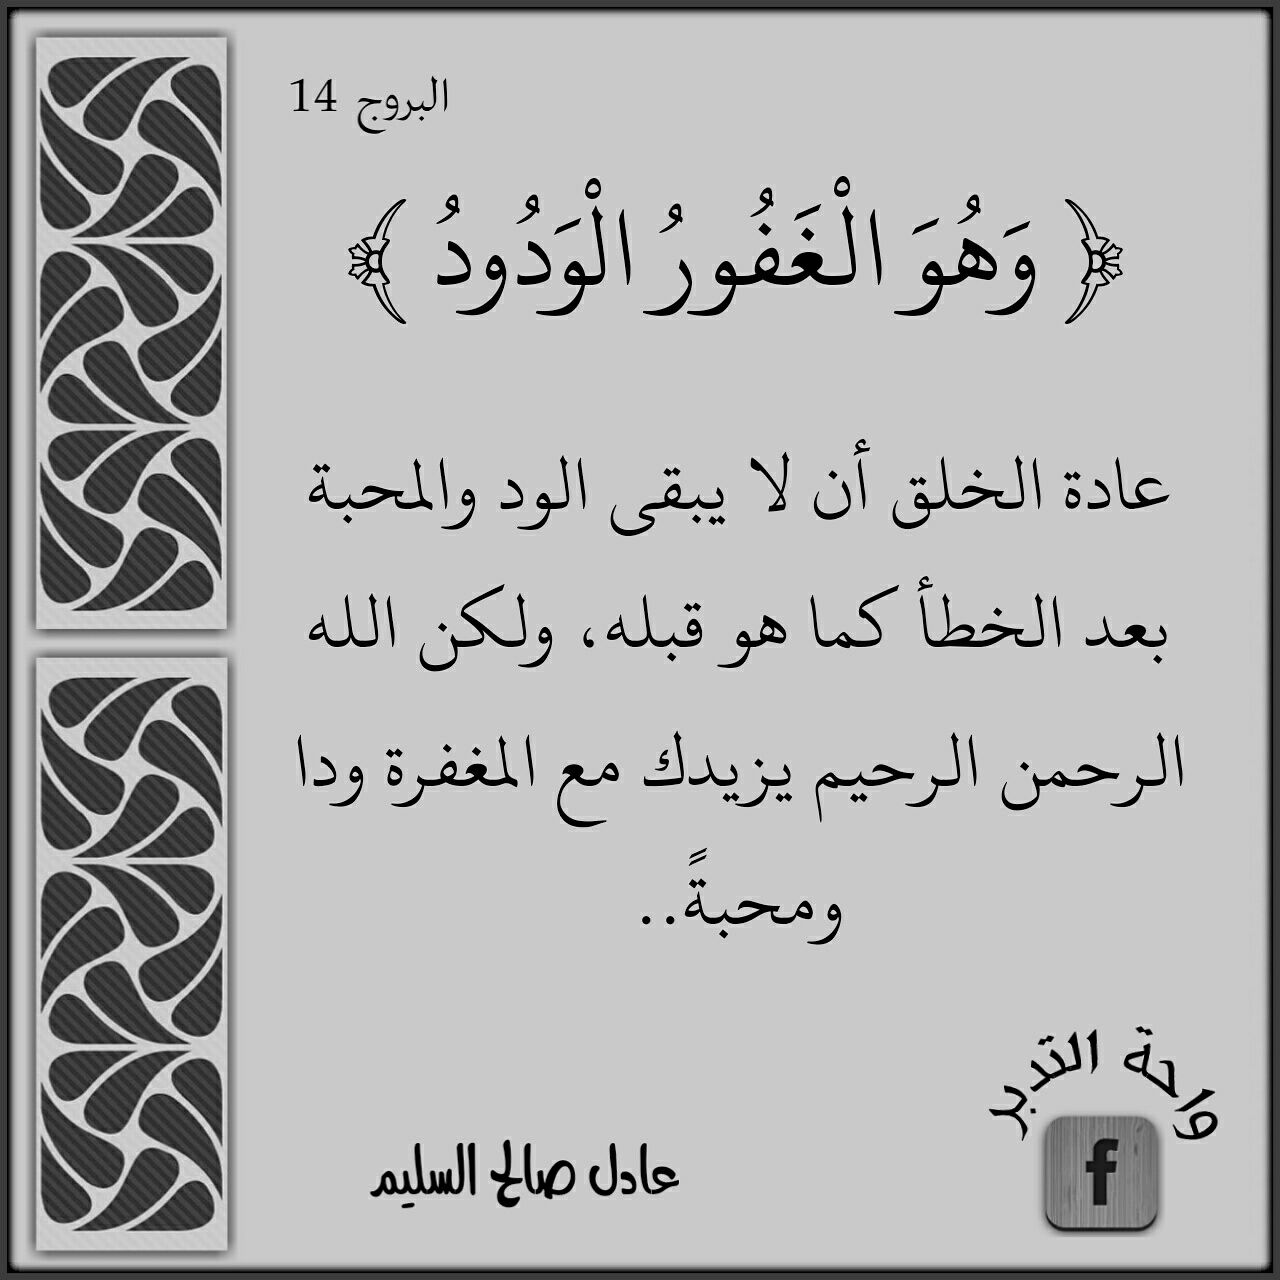 البروج 14
﴿ وَهُوَ الْغَفُورُ الْوَدُودُ ﴾
عادة الخلق أن لا يبقى الود والمحبة
بعد الخطأ كما هو قبله، ولكن الله
الرحمن الرحيم يزيدك مع المغفرة ودا
ومحبةً..
واحة التدبر
f
عادل صالح السليم